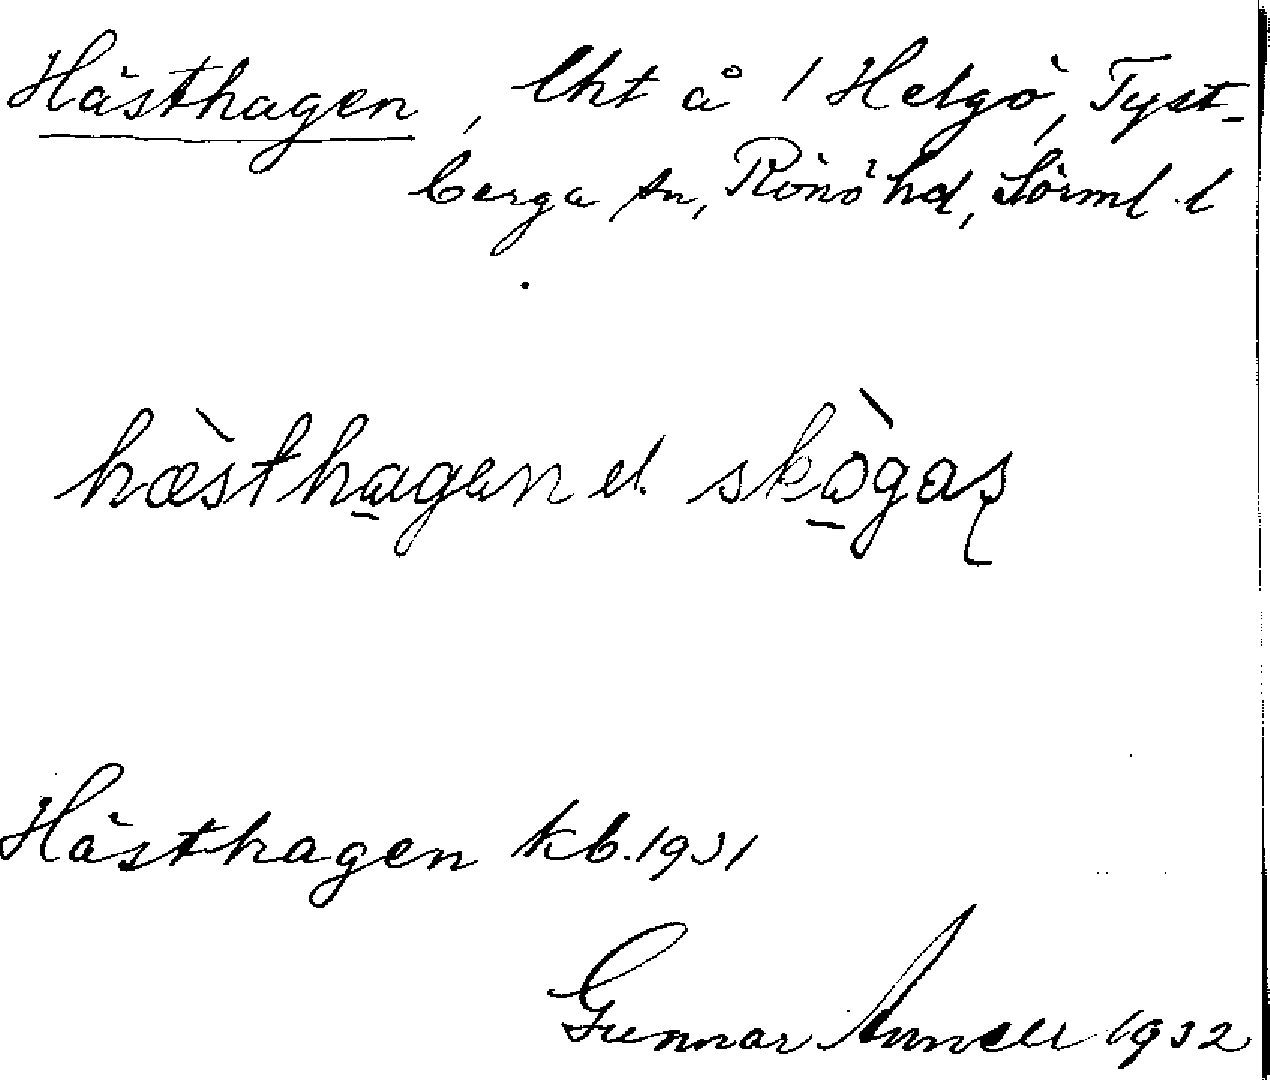 Hästhagen, lht å 1 Helgö, Tyst-
berga sn, Rönö hd, Sörml. l
hæ̀sthagen el. skògas
Hästhagen kb. 1931
Gunnar Annell 1932